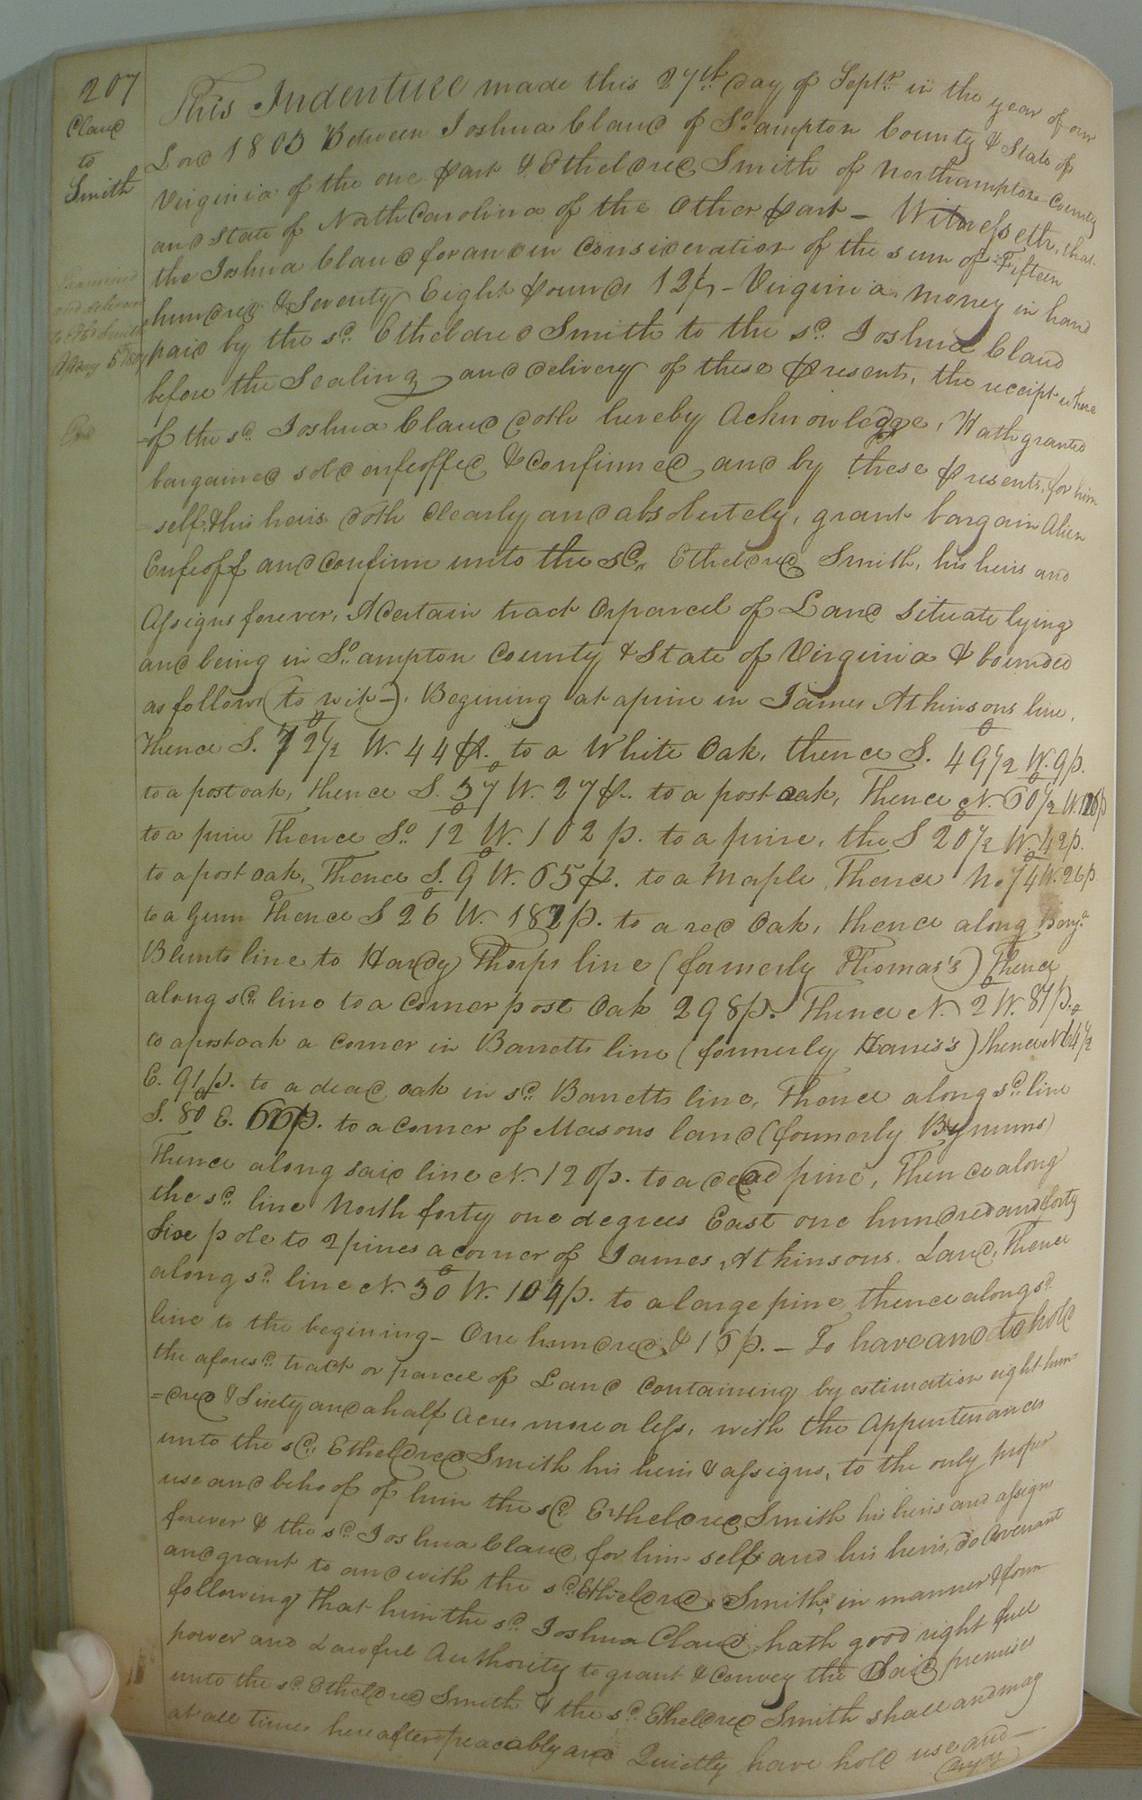 207
Claud
to
Smith
Examined
May 5th
This Indenture made this 27th day of Septr. in the year of our
Lord 1803 Between Joshua Claud of So.ampton County & State of
Virginia of the one part & Etheldred Smith of Northampton County
and State of North Carolina of the Other part - Witnesseth, that
the Joshua Claud for and in Consideration of the sum of Fifteen
hundred & Seventy Eight pounds 12/ - Virginia money in hand
paid by the sd. Etheldred Smith to the sd. Joshua Claud
before the Sealing and delivery of these Presents, the receipt where
-of the sd. Joshua Claud doth hereby Acknowledge, Hath granted
bargained sold enfeoffed & Confirmed and by these presents, for him
-self & his heirs doth Clearly and absolutely, grant bargain Alien
Enfeoff and Confirm unto the sd. Etheldred Smith, his heirs and
Assigns forever, A Certain tract or parcel of Land Situate lying
and being in So.ampton County & State of Virginia & bounded
as follows (to wit -). Begining at a pine in James Atkinsons line,
thence S. 72½ W. 44 p. to a White Oak, thence S. 49½ W. 9p.
to a post oak, thence S. 37 W. 27p. to a post oak, Thence N. 60½ W. 126p
to a pine Thence So. 12 W. 102 p. to a pine, the S 20½ W. 42p.
to a post oak, Thence S. 9 W. 65p. to a Maple Thence No. 74 W. 26p
to a Gum Thence S 26 W. 182p. to a red Oak, thence along Benja.
Blunts line to Hardy Thorps line (formerly Thomas's) Thence
along sd. line to a Corner post Oak 298p. Thence N. 2 W. 87p.
to a post oak a Corner in Barretts line (formerly Harris's) thence N 64½
E. 91p. to a dead oak in sd. Barretts line, Thence along sd. line
S. 80 E. 66p. to a Corner of Masons land (formerly Bynums)
Thence along said line N. 120p. to a dead pine, Thence along
the sd. line North forty one degrees East one hundred and forty
five pole to 2 pines a corner of James Atkinsons Land, Thence
along sd. line N. 30 W. 104p. to a large pine thence along sd.
line to the begining - One hundred & 16 p. - To have and to hold
the aforesd. tract or parcel of Land Containing by estimation eight hun-
=dred & Sixty and a half Acres more or less, with the Appurtenances
unto the sd. Etheldred Smith his heirs & assigns, to the only proper
use and behoof of him the sd. Etheldred Smith his heirs and assigns
forever & the sd. Joshua Claud, for him self and his heirs, do Covenant
and grant to and with the sd. Etheldred Smith, in manner & form
following That him the sd. Joshua Claud hath good right full
power and Lawful Authority to grant & Convey the Said premises
unto the sd. Etheldred Smith & the sd. Etheldred Smith shall and may
at all times hereafter peacably and Quietly have hold use and -
enjoy